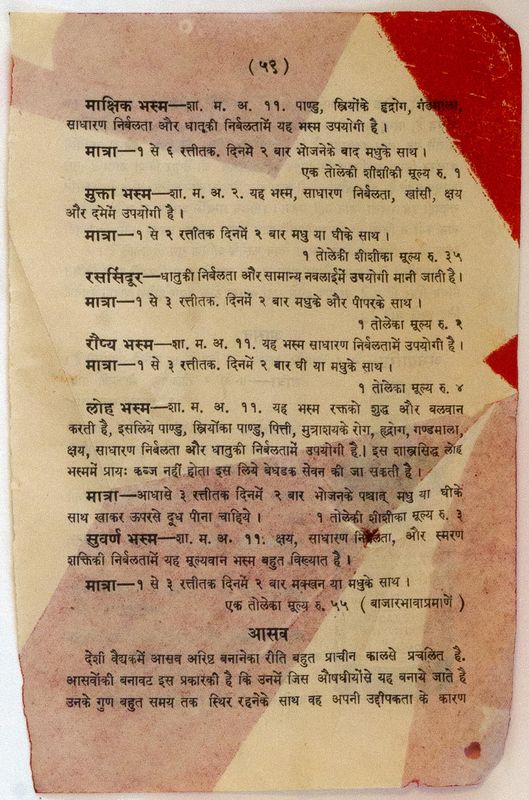 ( ५९ )
माक्षिक भस्म—शा. म. अ. ११. पाण्डु, स्त्रियोंके हृद्रोग, गंडमाला,
साधारण निर्बलता और धातुकी निर्बलतामें यह भस्म उपयोगी है ।
मात्रा—१ से ६ रत्तीतक. दिनमें २ बार भोजनेके बाद मधुके साथ ।
एक तोलेकी शीशीकी मूल्य रु. १
मुक्ता भस्म—शा. म. अ. २. यह भस्म, साधारण निर्बलता, खांसी, क्षय
और दममें उपयोगी है ।
मात्रा—१ से २ रत्तीतक दिनमें २ बार मधु या घीके साथ ।
१ तोलेकी शीशीका मूल्य रु. ३५
रससिंदूर—धातुकी निर्बलता और सामान्य नबलाईमें उपयोगी मानी जाती है ।
मात्रा—१ से ३ रत्तीतक. दिनमें २ बार मधुके और पीपरके साथ ।
१ तोलेका मूल्य रु. २
रौप्य भस्म—शा. म. अ. ११. यह भस्म साधारण निर्बलतामें उपयोगी है ।
मात्रा—१ से ३ रत्तीतक. दिनमें २ बार घी या मधुके साथ ।
१ तोलेका मूल्य रु. ४
लोह भस्म—शा. म. अ. ११. यह भस्म रक्तको शुद्ध और बलवान
करती है, इसलिये पाण्डु, स्त्रियोंका पाण्डु, पित्ती, मुत्राशयके रोग, हृद्रोग, गण्डमाला,
क्षय, साधारण निर्बलता और धातुकी निर्बलतामें उपयोगी है. । इस शास्त्रसिद्ध लोह
भस्ममें प्रायः कब्ज नहीं होता इस लिये बेधडक सेवन की जा सकती है ।
मात्रा—आधासे ३ रत्तीतक दिनमें २ बार भोजनके पश्चात् मधु या घीके
साथ खाकर ऊपरसे दूध पीना चाहिये । १ तोलेकी शीशीका मूल्य रु. ३
सुवर्ण भस्म—शा. म. अ. ११. क्षय, साधारण निर्बलता, और स्मरण
शक्तिकी निर्बलतामें यह मूल्यवान भस्म बहुत विख्यात है ।
मात्रा—१ से ३ रत्तीतक दिनमें २ बार मक्खन या मधुके साथ ।
एक तोलेका मूल्य रु. ५५ ( बाजारभावाप्रमाणें )
आसव
देशी वैद्यकमें आसव अरिष्ठ बनानेका रीति बहुत प्राचीन कालसे प्रचलित है.
आसवोंकी बनावट इस प्रकारकी है कि उनमें जिस औषधीयोंसे यह बनाये जाते है
उनके गुण बहुत समय तक स्थिर रहनेके साथ वह अपनी उद्दीपकता के कारण